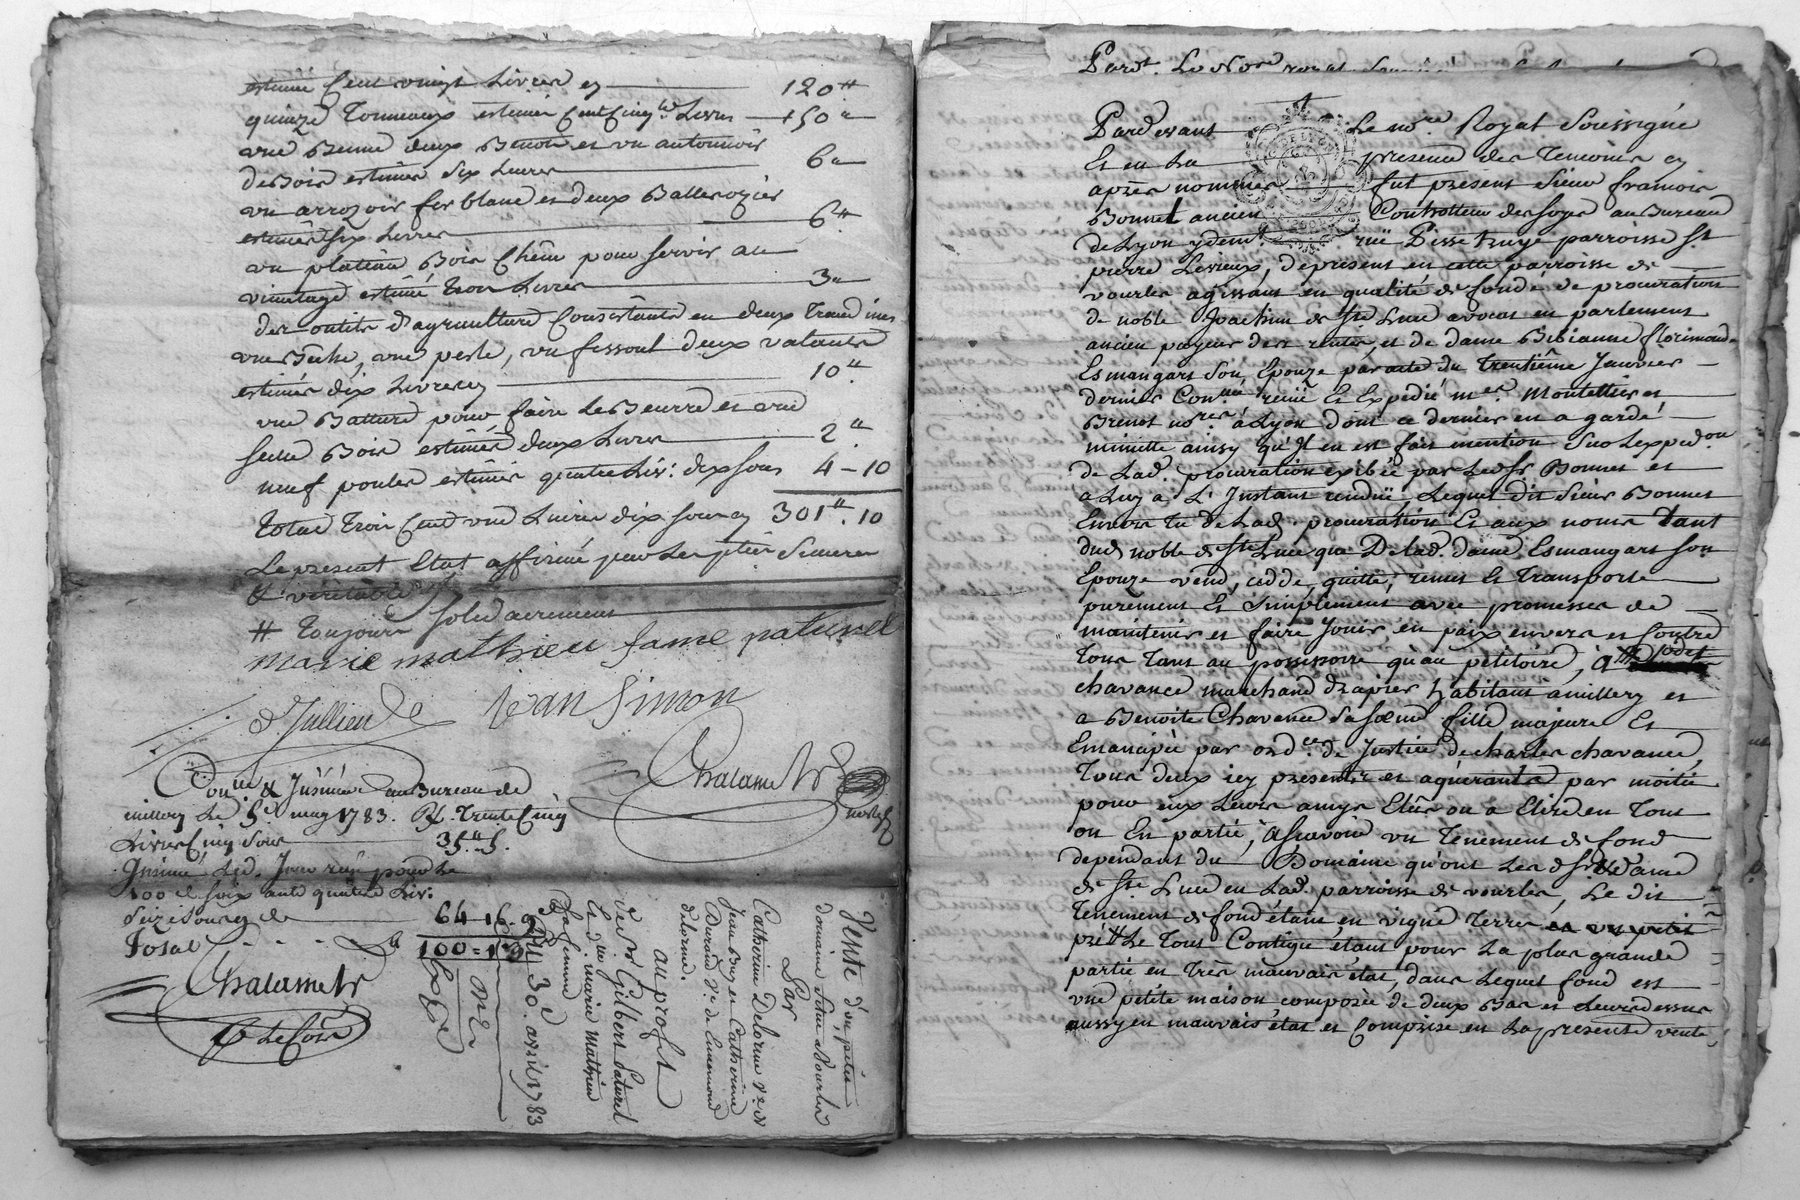 estimé Cent vingt Livres cy 120 ₶
quinze Tonneaux estimés Cent Cinq.te Livres 150 "
une Benne deux Benots et un antonnoir
de Bois estimés six Livres 6 "
un arrozoir fer blanc et deux
estimés six Livres 6 ₶
un plateau Bois Chêne pour servir au
vinetage estimé Trois Livres 3 "
des outils d'agriculture Consistants en deux
une Bêche, une pesle, un fessout deux
estimés dix Livres cy 10 ₶
une Batture pour faire Le Beurre et une
seille Bois estimés deux Livres 2 ₶
neuf poules estimées quatre Liv: dix sous 4 - 10
Total Trois Cent une Livres dix sous cy 301 ₶. 10
Le présent Etat affirmé par Les pties Sincere
& véritable
# Toujours solidairement
marie mathieu fame paturel
Jullien Jean Simon
Chalamel
Con.lé & Insinué au Bureau de
millery Le 5e may 1783. R. Trente Cinq
Livres Cinq Sous 35 ₶. 5.
Insinué Led. Jour reçu pour Le
100e. soixante quatre Liv:
seize sous 64 - 16 -
Total 100 =
Chalamel
Du 30. avril 1783
Vente d'un petit
Domaine situé à Vourles
Par
Catherine Delorme Ve. de
Jean Buy et Catherine
Durand Ve. de
delorme.
au profit
de sr. Gilbert paturel
et dlle. marie mathieu
sa femme
Pardt. Le No.re royal
Pardevant Le no.re Royal Soussigné
Et en La présence des Temoins cy
après nommés fut présent Sieur francois
Bonnet ancien Controlleur des soyes au Bureau
de Lyon y demt. ruë Pisse truye parroisse St
pierre Levieux, deprésent en cette parroisse de
vourles agissant en qualité de fondé de procuration
de noble Joachim de Ste Luce avocat en parlement
ancien payeur des rentes, et de dame Bibianne florimond
Esmangart son Epouze par acte du Trentième Janvier
dernier Con.llé reçuë Et Expédié mes. Montellier et
Brenot no.res à Lyon dont ce dernier en a gardé
minutte ainsy qu'Il en est fait mention Sur Lexpedon
de Lad. procuration exibée par Led. Sr Bonnet et
a Luy à L'Instant renduë, Lequel dit Sieur Bonnet
En vertu de Lad. procuration Et aux noms Tant
dud. noble de Ste Luce que De lad. dame Esmangart son
Epouze vend, cedde, quitte, remet Et Transporte
purement Et simplement avec promesses de
maintenir et faire Jouir en paix envers et Contre
Tous Tant au possessoire qu'au petitoire, à
chavance marchand drapier habitant à millery et
a Benoite Chavance sa sœur fille majeure Et
Emancipée par ord.ce de Justice de charles chavance,
Tous deux icy présents et aquerants par moitié
pour eux Leurs amys Elûs ou a Elire en Tout
ou En partie, asçavoir un Tenement de fond
dependant du Domaine qu'ont Les d. sr & dame
de Ste Luce en Lad. parroisse de vourles, Le dit
Tenement de fond étant en vigne terres en un petit
pré ₶ Le Tout Contigu étant pour La plus grande
partie en Très mauvais état, dans Lequel fond est
une petite maison composée de deux Bas et Leur dessus
aussy en mauvais état et Comprise en La présente vente,